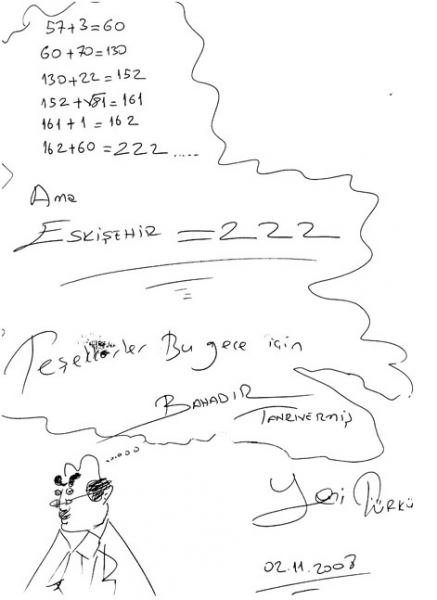 57+3=60
60+70=130
130+22=152
152+√81=161
161+1=162
162+60=222.....
Ama
ESKİŞEHİR=222
Teşekkürler Bu gece için
BAHADIR
TANRIVERMİŞ
Yeni Türkü
02.11.2008